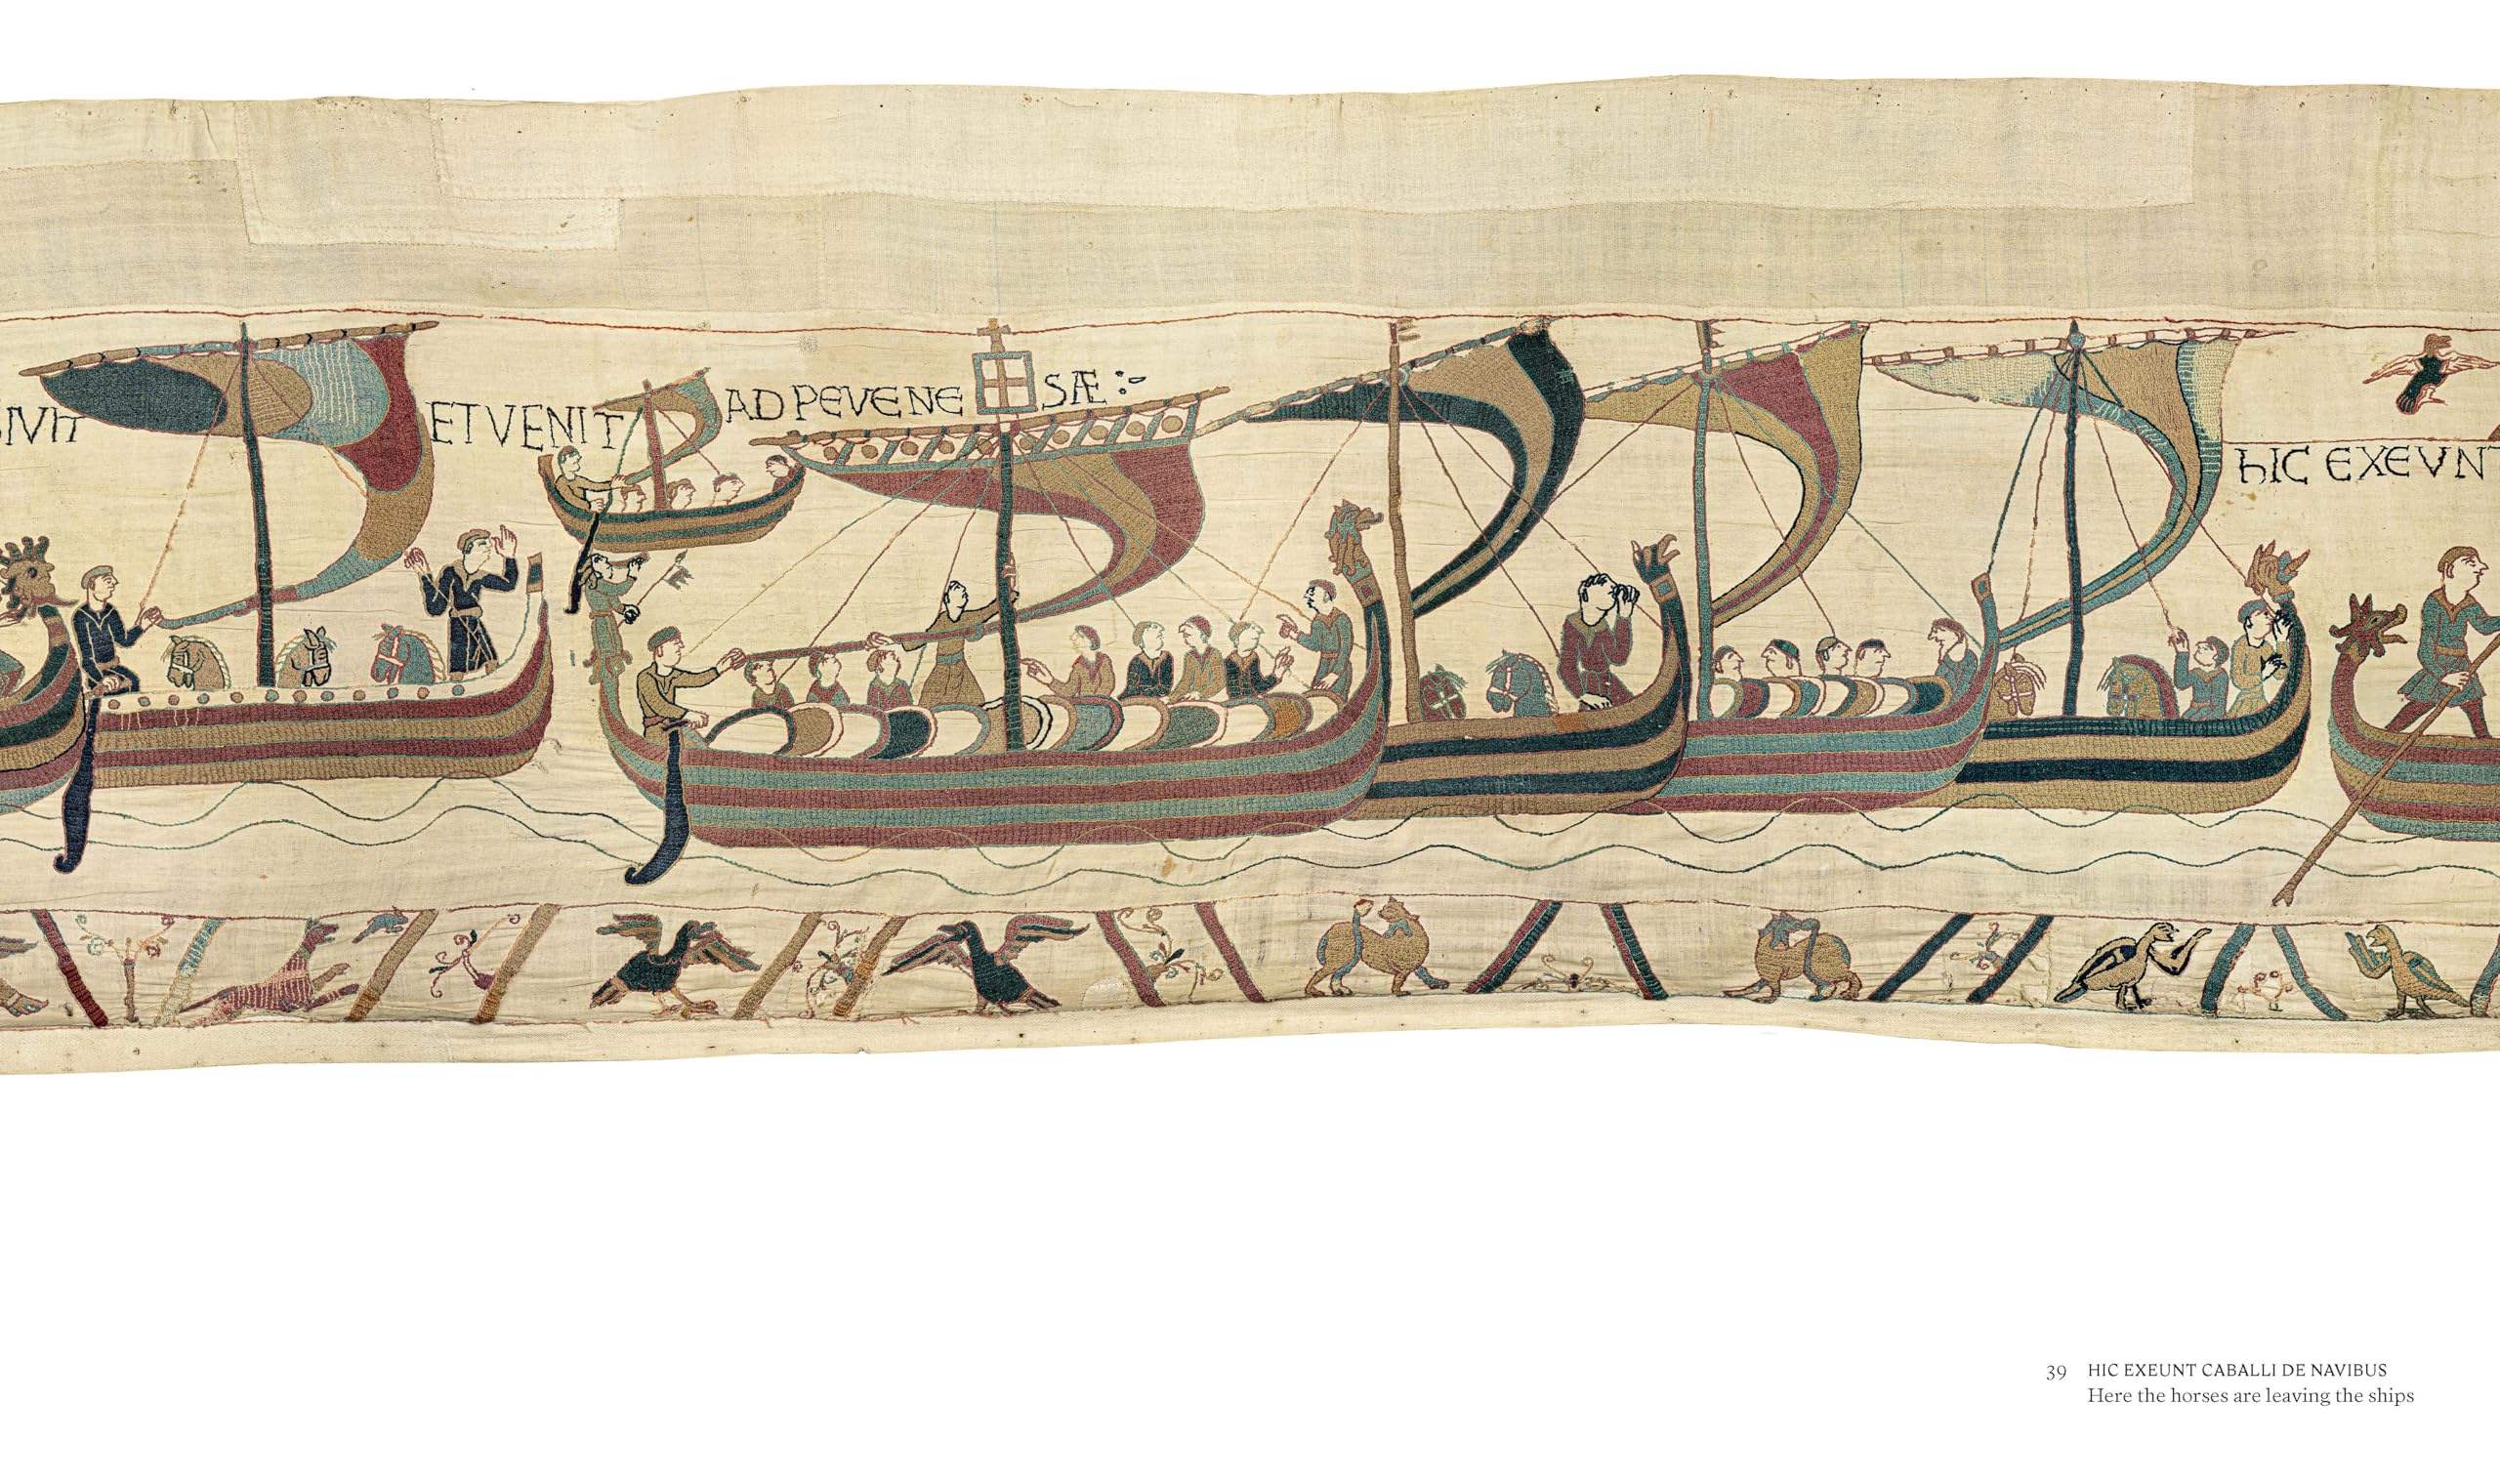 ET VENIT AD PEVENE SÆ :-
HIC EXEUN
39 HIC EXEUNT CABALLI DE NAVIBUS
Here the horses are leaving the ships